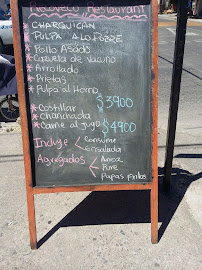 Restaurant
* CHARQUICAN
* PULPA A LO POBRE
* Pollo Asado
* Cazuela de Vacuno
* Arrollado
* Prietas
* Pulpa al Horno
$3900
* Costillar
* Chanchada
* Carne al jugo $4900
Incluye Consume
Ensalada
Agregados Arroz
Pure
Papas fritas